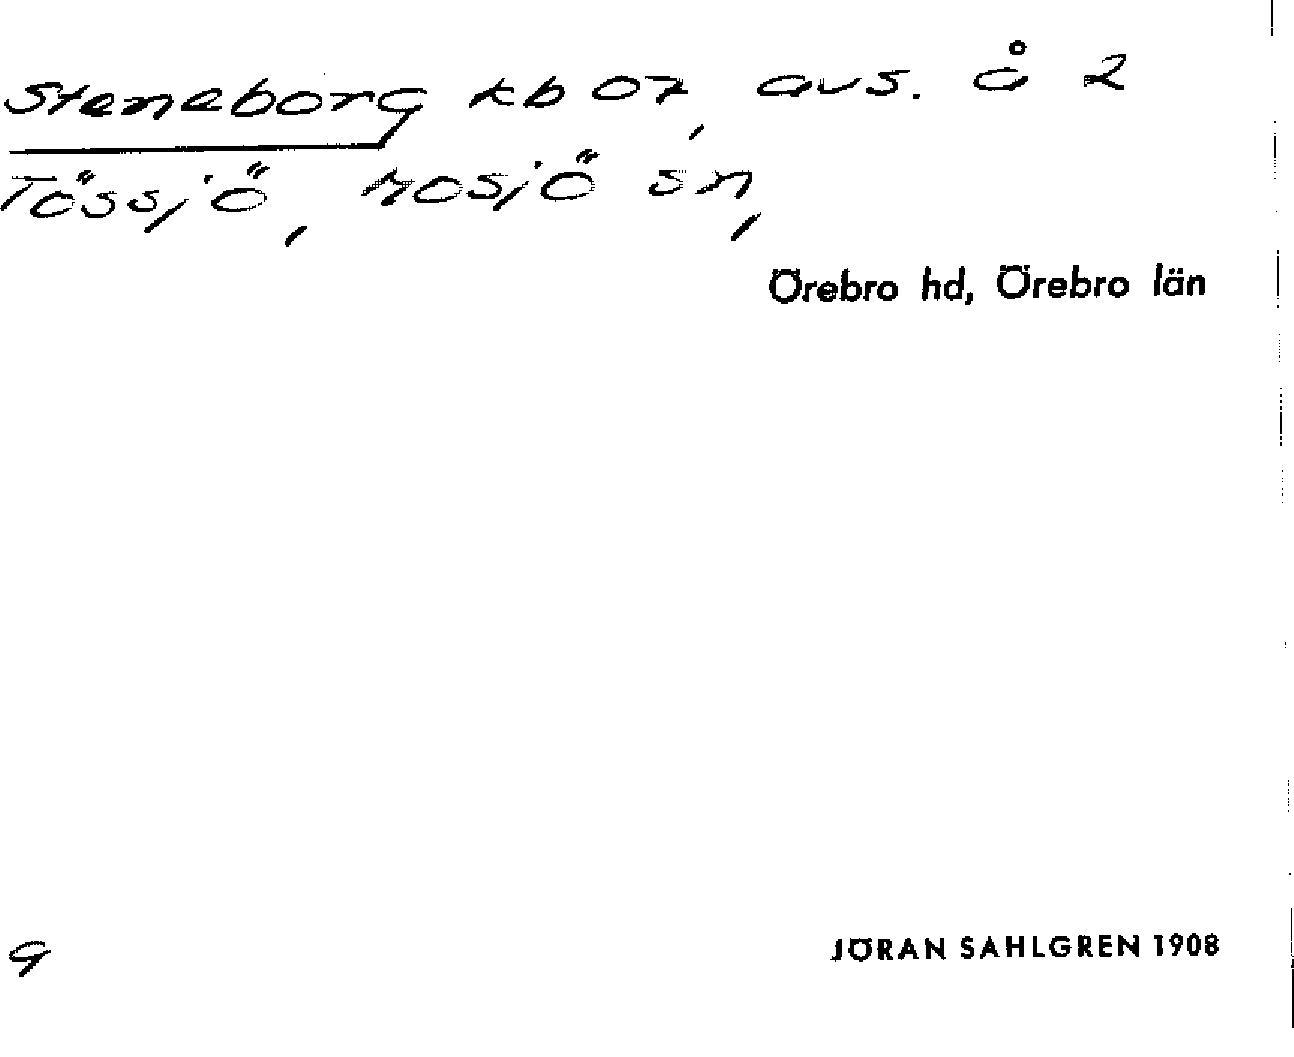 Steneborg kb 07, avs. å 2
Tössjö, rosjö sn,
Örebro hd, Örebro län
9
JÖRAN SAHLGREN 1908